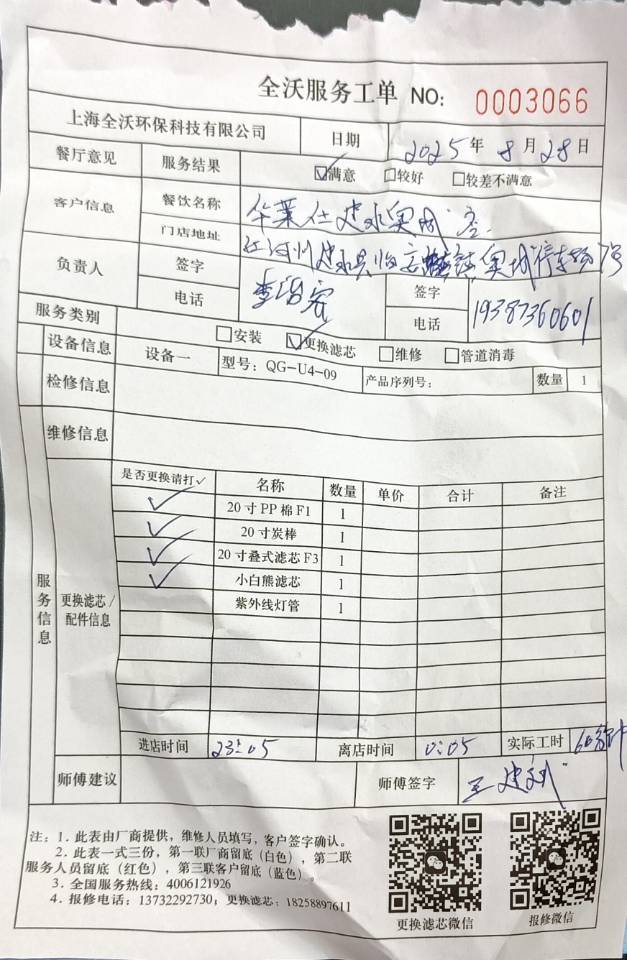 全沃服务工单 NO: 0003066
上海全沃环保科技有限公司 日期 2025年 8月 28日
餐厅意见 服务结果 ☑满意 □较好 □较差不满意
客户信息 餐饮名称 华莱仕建水奥城店
门店地址 红河州建水县临安 奥城停车场 号
负责人 签字 签字
电话 电话 19387360601
服务类别 □安装 ☑更换滤芯 □维修 □管道消毒
设备信息 设备一 型号：QG-U4-09 产品序列号： 数量 1
检修信息
维修信息
服务信息
更换滤芯/配件信息
是否更换请打✓ 名称 数量 单价 合计 备注
✓ 20寸PP棉F1 1
✓ 20寸炭棒 1
✓ 20寸叠式滤芯F3 1
✓ 小白熊滤芯 1
紫外线灯管 1
进店时间 23:05 离店时间 0:05 实际工时 60分钟
师傅建议 师傅签字 王
注：1．此表由厂商提供，维修人员填写，客户签字确认。
2．此表一式三份，第一联厂商留底（白色），第二联
服务人员留底（红色），第三联客户留底（蓝色）。
3．全国服务热线：4006121926
4．报修电话：13732292730，更换滤芯：18258897611
更换滤芯微信 报修微信